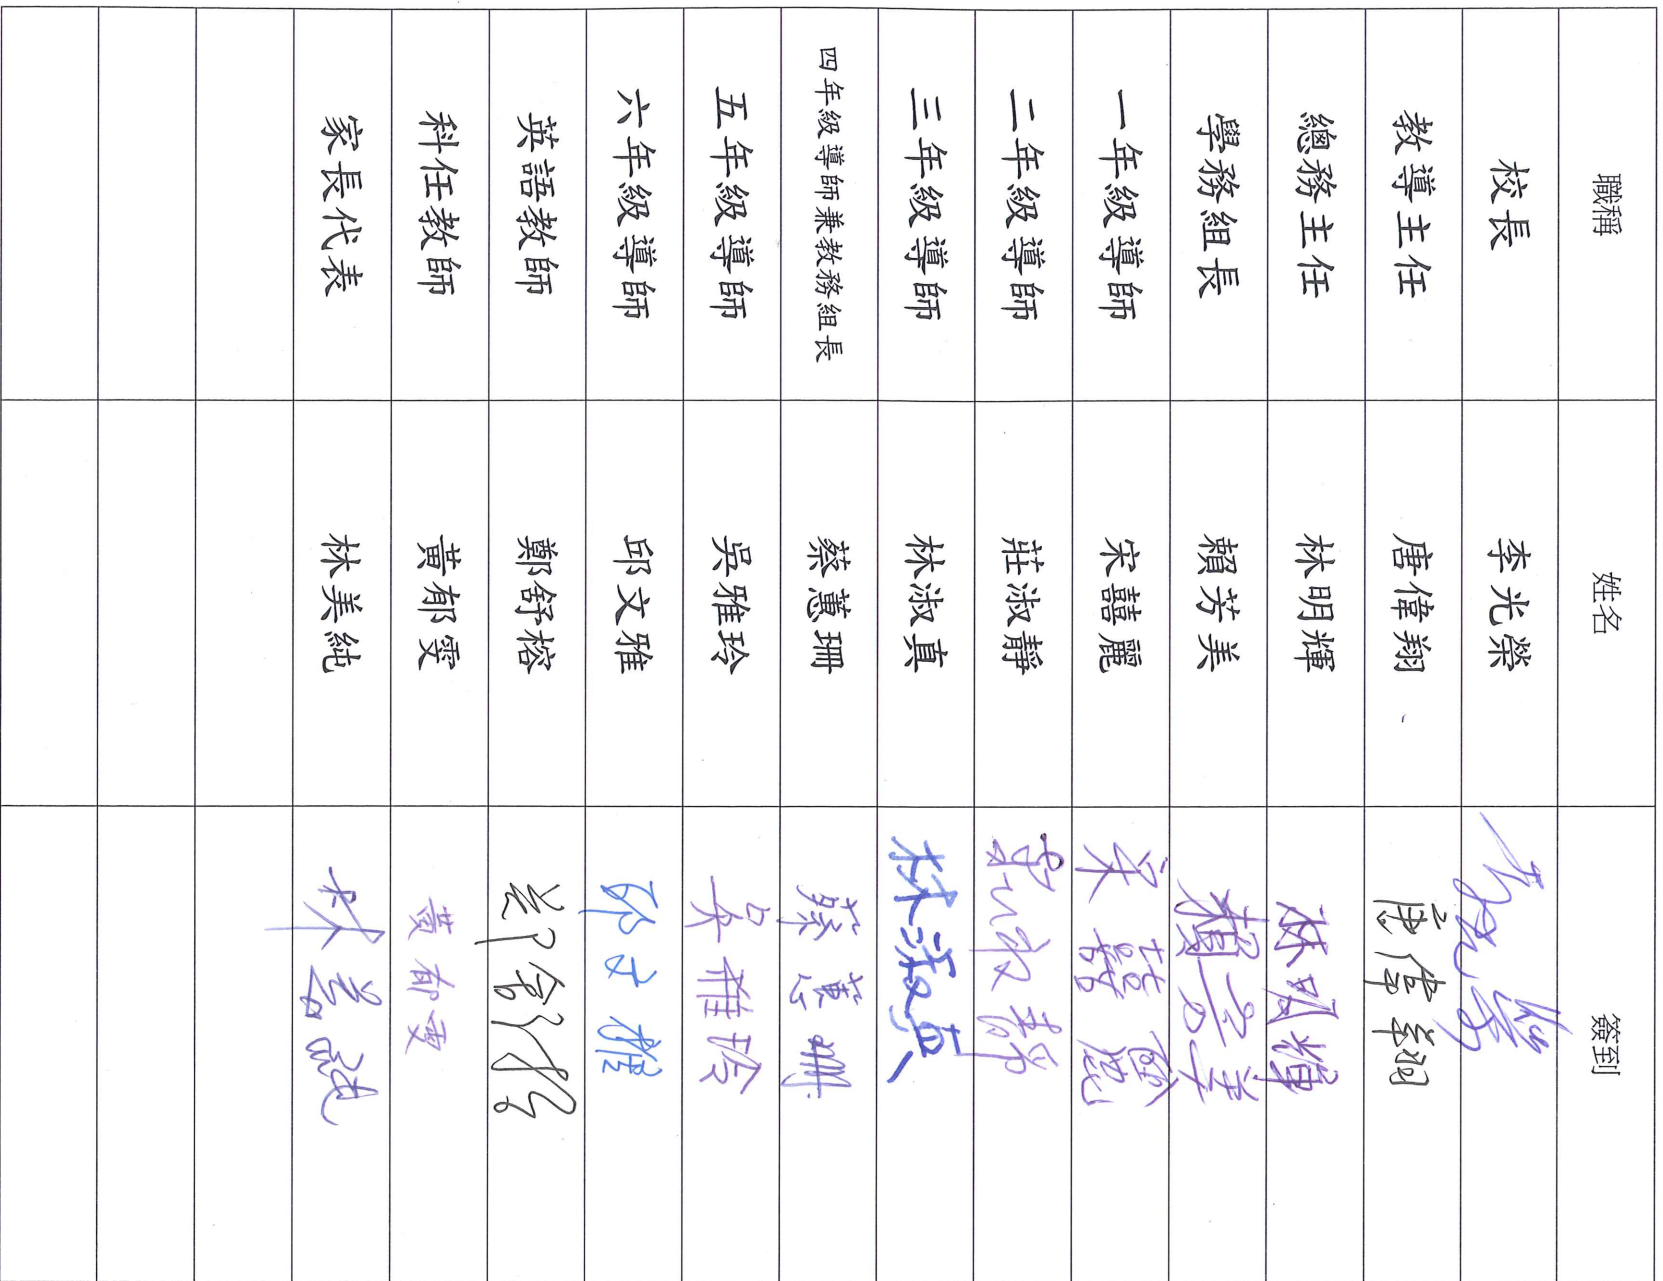 職稱 姓名 簽到
校長 李光榮 李光榮
教導主任 唐偉翔 唐偉翔
總務主任 林明輝 林明輝
學務組長 賴芳美 賴芳美
一年級導師 宋囍麗 宋囍麗
二年級導師 莊淑靜 莊淑靜
三年級導師 林淑真 林淑真
四年級導師兼教務組長 蔡蕙珊 蔡蕙珊
五年級導師 吳雅玲 吳雅玲
六年級導師 邱文雅 邱文雅
英語教師 鄭舒榕 鄭舒榕
科任教師 黃郁雯 黃郁雯
家長代表 林美純 林美純